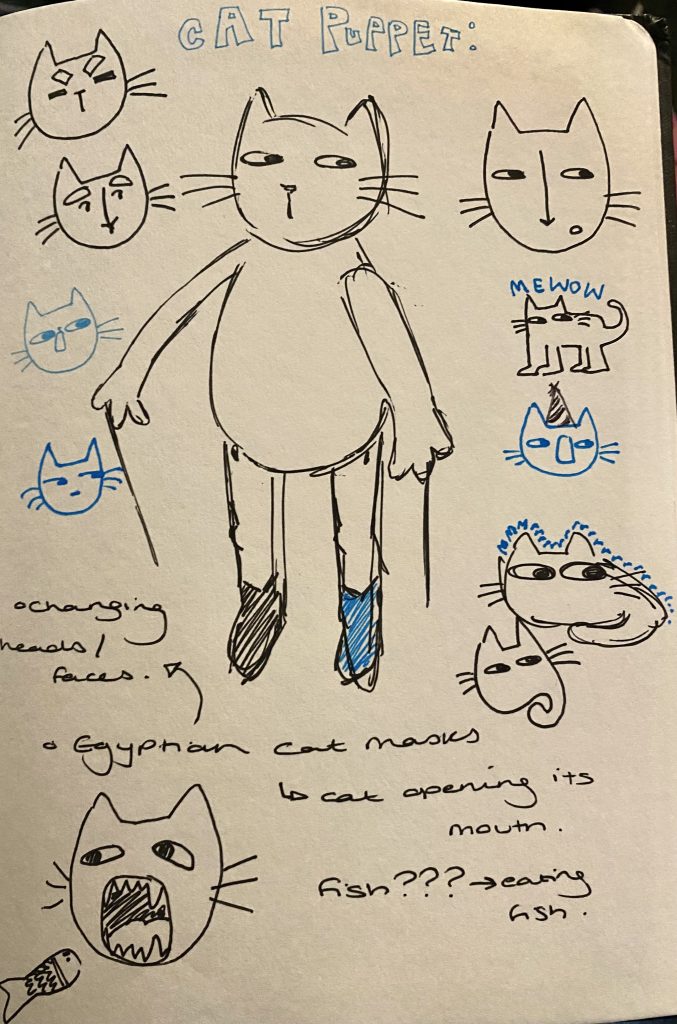 CAT PUPPET:
MEWOW
o changing
heads /
faces.
o Egyptian cat masks
↳ cat opening its
mouth.
fish??? → eating
fish.